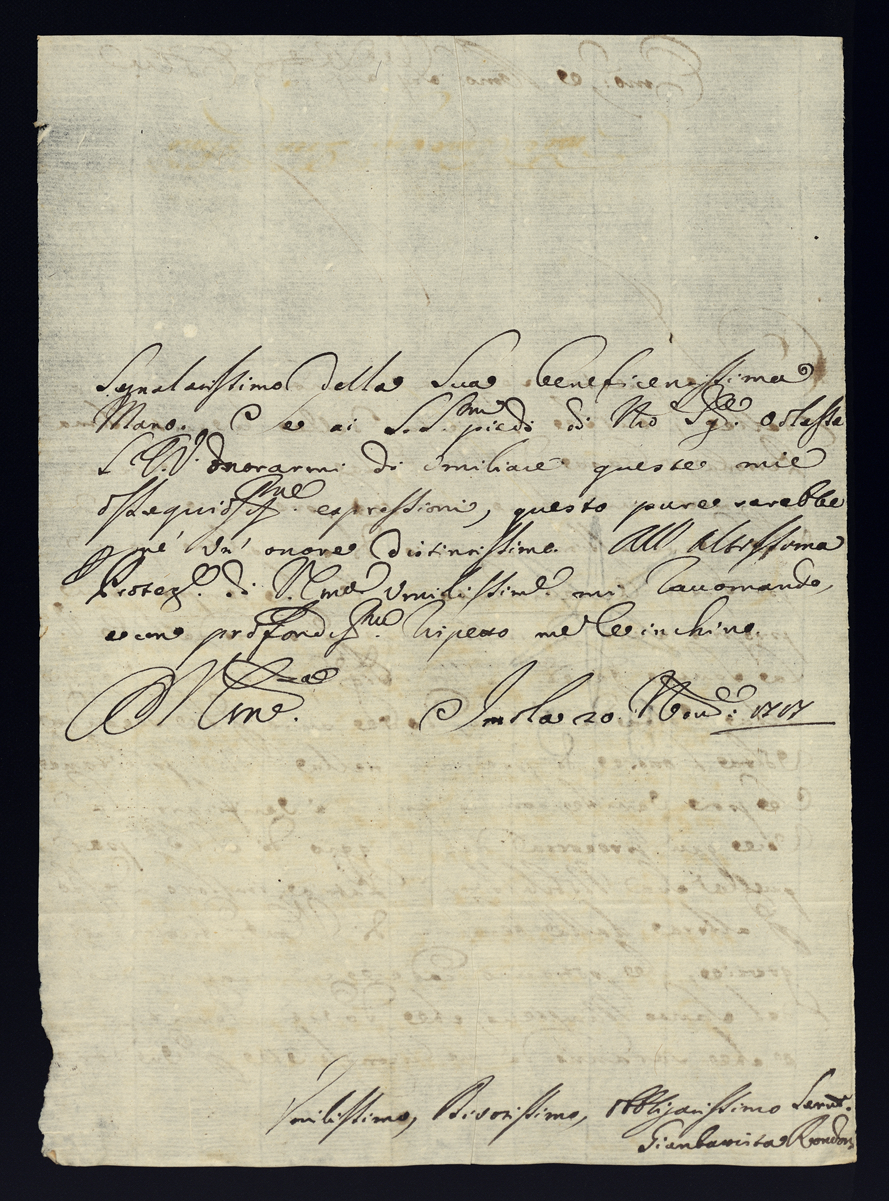 Segnalatissimo della Sua beneficentissima
Mano. E se ai S.S.mi piedi di Nro Sig.re
V. onorarmi di umiliare queste mie
ossequiosis.me espressioni, questo pure sarebbe
un' onore distintissimo. All' Altissima
Protez.e di V. Em.za umilissim.e mi raccomando,
e con profondis.mo rispetto me le inchino.
Imola 20. Nov.e 1717
Umilissimo, Divotissimo, Obbligatissimo Serv.e
Gianbattista Rondoni